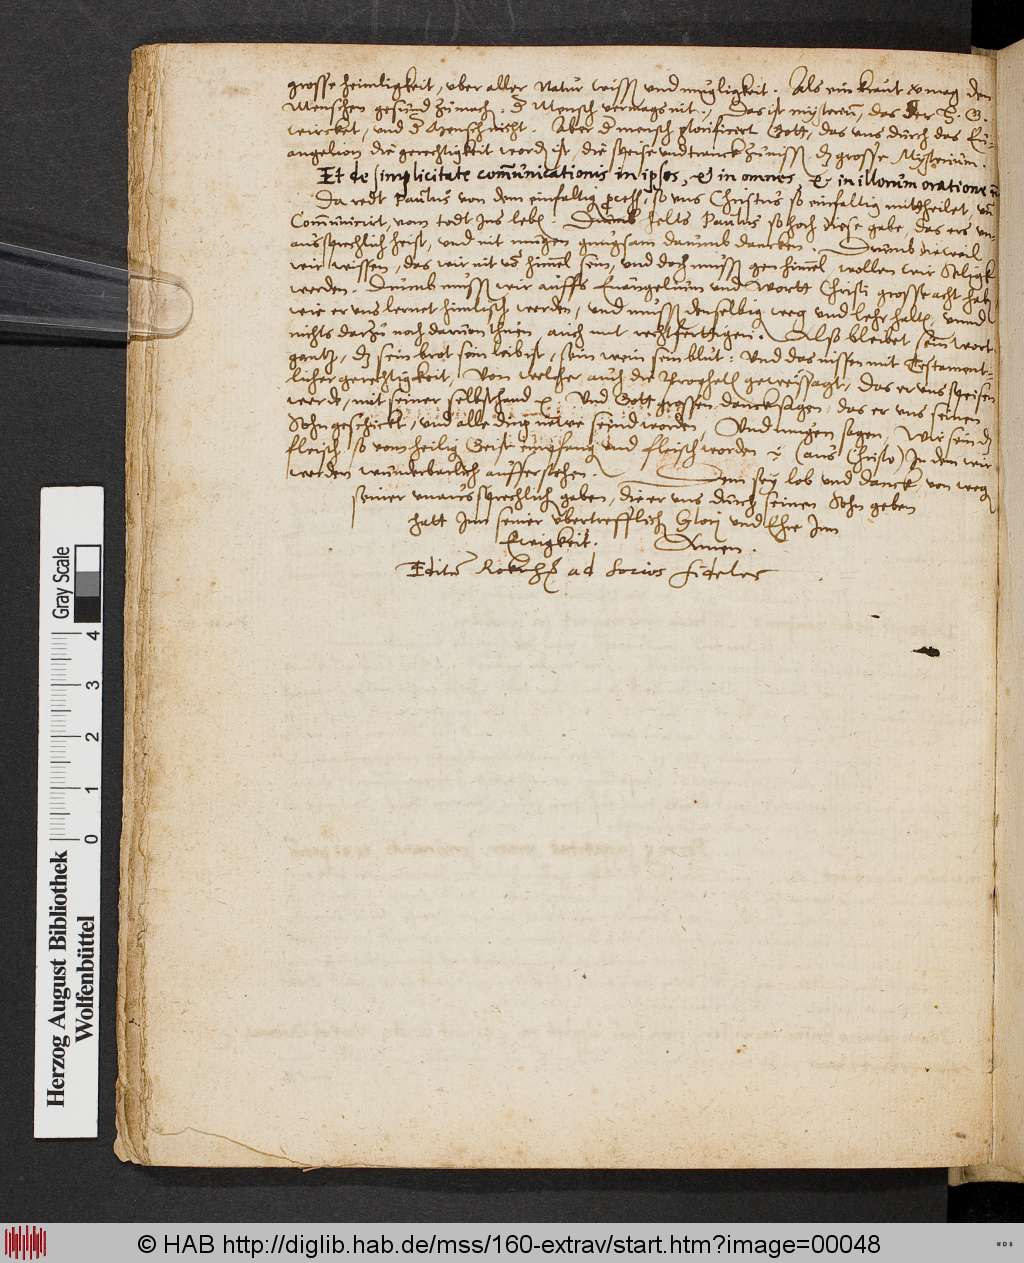 grosse heimligkeit, vber aller Natur wiß vnd mügligkeit. Als ein kraut &c mag den
Menschen gesund zumach, d Mensch vermags nit. Das ist mysteriū, das der H. G.
wircket, vnd d Mensch nicht. Aber d mensch glorificiert Gott, das vns durch das Eu-
angelion die gerechtigkeit word ist, die speise vnd tranck zuniß dz grosse Mysterium.
Et de simplicitate com̄unicationis in ipsos, & in omnes & in illorum oratione
Da redt Paulus von dem einfaltig so vns Christus so einfaltig mittheilet, vn̄
Com̄unicirt, vom todt Ins leb. Darumb helts Paulus so hoch diese gabe, das ers vn-
aussprechlich heist, vnd nit mugen gnugsam darumb dancken. Darumb dieweil
wir wissen, das wir nit vō himel sein, vnd doch muß gen himel, wollen wir Selig
werden. Darumb muß wir auffs Euangelium vnd Wortt Christi grosse acht hab,
wie er vns lernet himlisch werden, vnd muß denselbig weg vnd lehr halt, vnnd
nichts darzu noch daruon thun, auch mit rechtferttigen. Also bleibet sein wort
gantz, dz sein brot sein leib ist, sein wein sein blut: Vnd das nissen mit Testament-
licher gerechtigkeit, Von welcher auch die Prophet geweissagt, das er vns speisen
werde, mit seiner selbst hand &c. Vnd Gott grossen dancksagen, das er vns seinen
Sohn geschickt, vnd alle ding newe seind worden, Vnd mugen sagen, Wir sein dz
fleisch, so vom heilig Geist empfang vnd fleisch worden &c (aus Christo) In dem wir
werden wunderbarlich aufferstehen. Dem sey lob vnd danck, von weg
seiner vnaussprechlich gaben, die er vns durch seinen Sohn geben
hatt Inn seiner vbertrefflich Glory vnd Ehre Inn
Ewigkeit. Amen.
ad socios fideles
Gray Scale
0 1 2 3 4
Herzog August Bibliothek
Wolfenbüttel
© HAB http://diglib.hab.de/mss/160-extrav/start.htm?image=00048